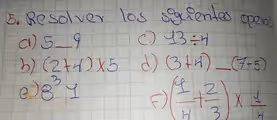 5. Resolver los siguientes
a) 5_9 c) 13÷4
b) (2+4)×5 d) (3+4)_(7-5)
e) 8³ 1
F) (1/4+2/3)×1/4